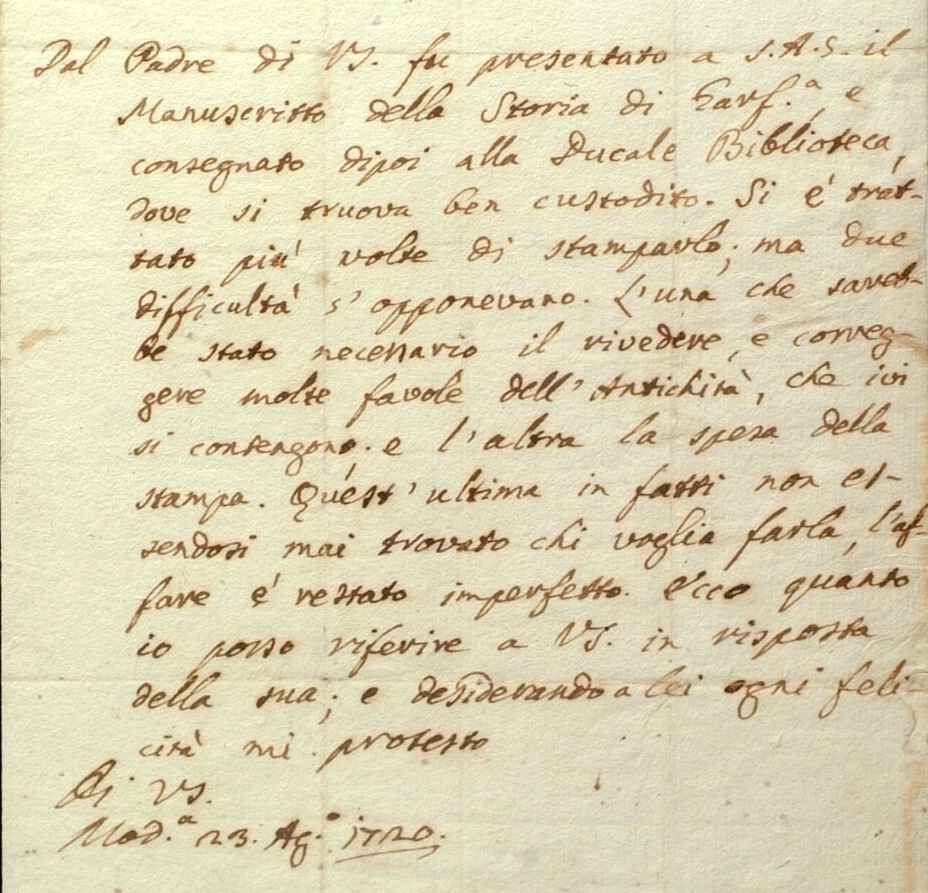 Dal Padre di VS. fu presentato a S.A.S. il
Manuscritto della Storia di Garf.ª, e
consegnato dipoi alla Ducale Biblioteca,
dove si truova ben custodito. Si è trat-
tato più volte di stamparlo; ma due
difficultà s'opponevano. L'una che sareb-
be stato necessario il rivedere, e correg-
gere molte favole dell'Antichità, che ivi
si contengono. e l'altra la spesa della
stampa. Quest'ultima in fatti non es-
sendosi mai trovato chi voglia farla, l'af-
fare è restato imperfetto. Ecco quanto
io posso riferire a VS. in risposta
della sua; e desiderando a lei ogni feli-
cità mi protesto
Di VS.
Mod.ª 23. Ag.º 1720.